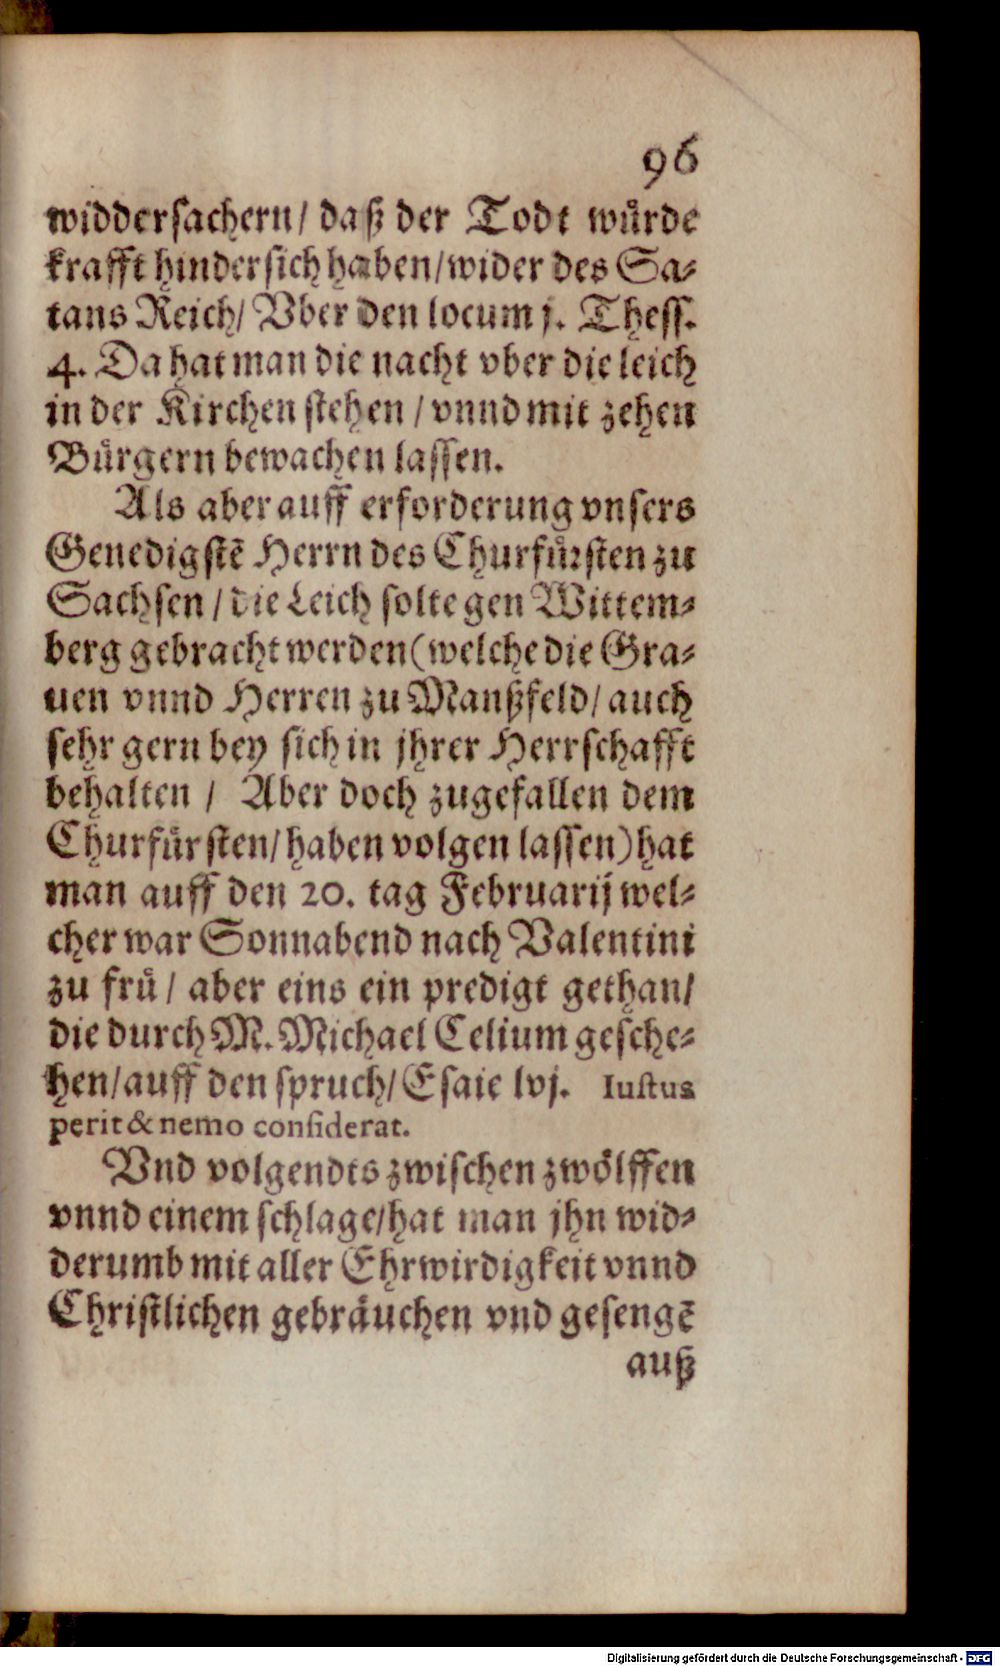 96
widdersachern/ daß der Todt wuͤrde
krafft hindersich haben/wider des Sa-
tans Reich/ Vber den locum j. Thess.
4. Da hat man die nacht vber die leich
in der Kirchen stehen / vnnd mit zehen
Buͤrgern bewachen lassen.
Als aber auff erforderung vnsers
Genedigstē Herrn des Churfuͤrsten zu
Sachsen / die Leich solte gen Wittem-
berg gebracht werden (welche die Gra-
uen vnnd Herren zu Manßfeld/ auch
sehr gern bey sich in jhrer Herrschafft
behalten / Aber doch zugefallen dem
Churfuͤrsten/ haben volgen lassen) hat
man auff den 20. tag Februarij wel-
cher war Sonnabend nach Valentini
zu fruͤ / aber eins ein predigt gethan/
die durch M. Michael Celium gesche-
hen/auff den spruch/ Esaie lvj. Iustus
perit & nemo considerat.
Vnd volgendts zwischen zwoͤlffen
vnnd einem schlage/hat man jhn wid-
derumb mit aller Ehrwirdigkeit vnnd
Christlichen gebraͤuchen vnd gesengē
auß
Digitalisierung gefördert durch die Deutsche Forschungsgemeinschaft - DFG